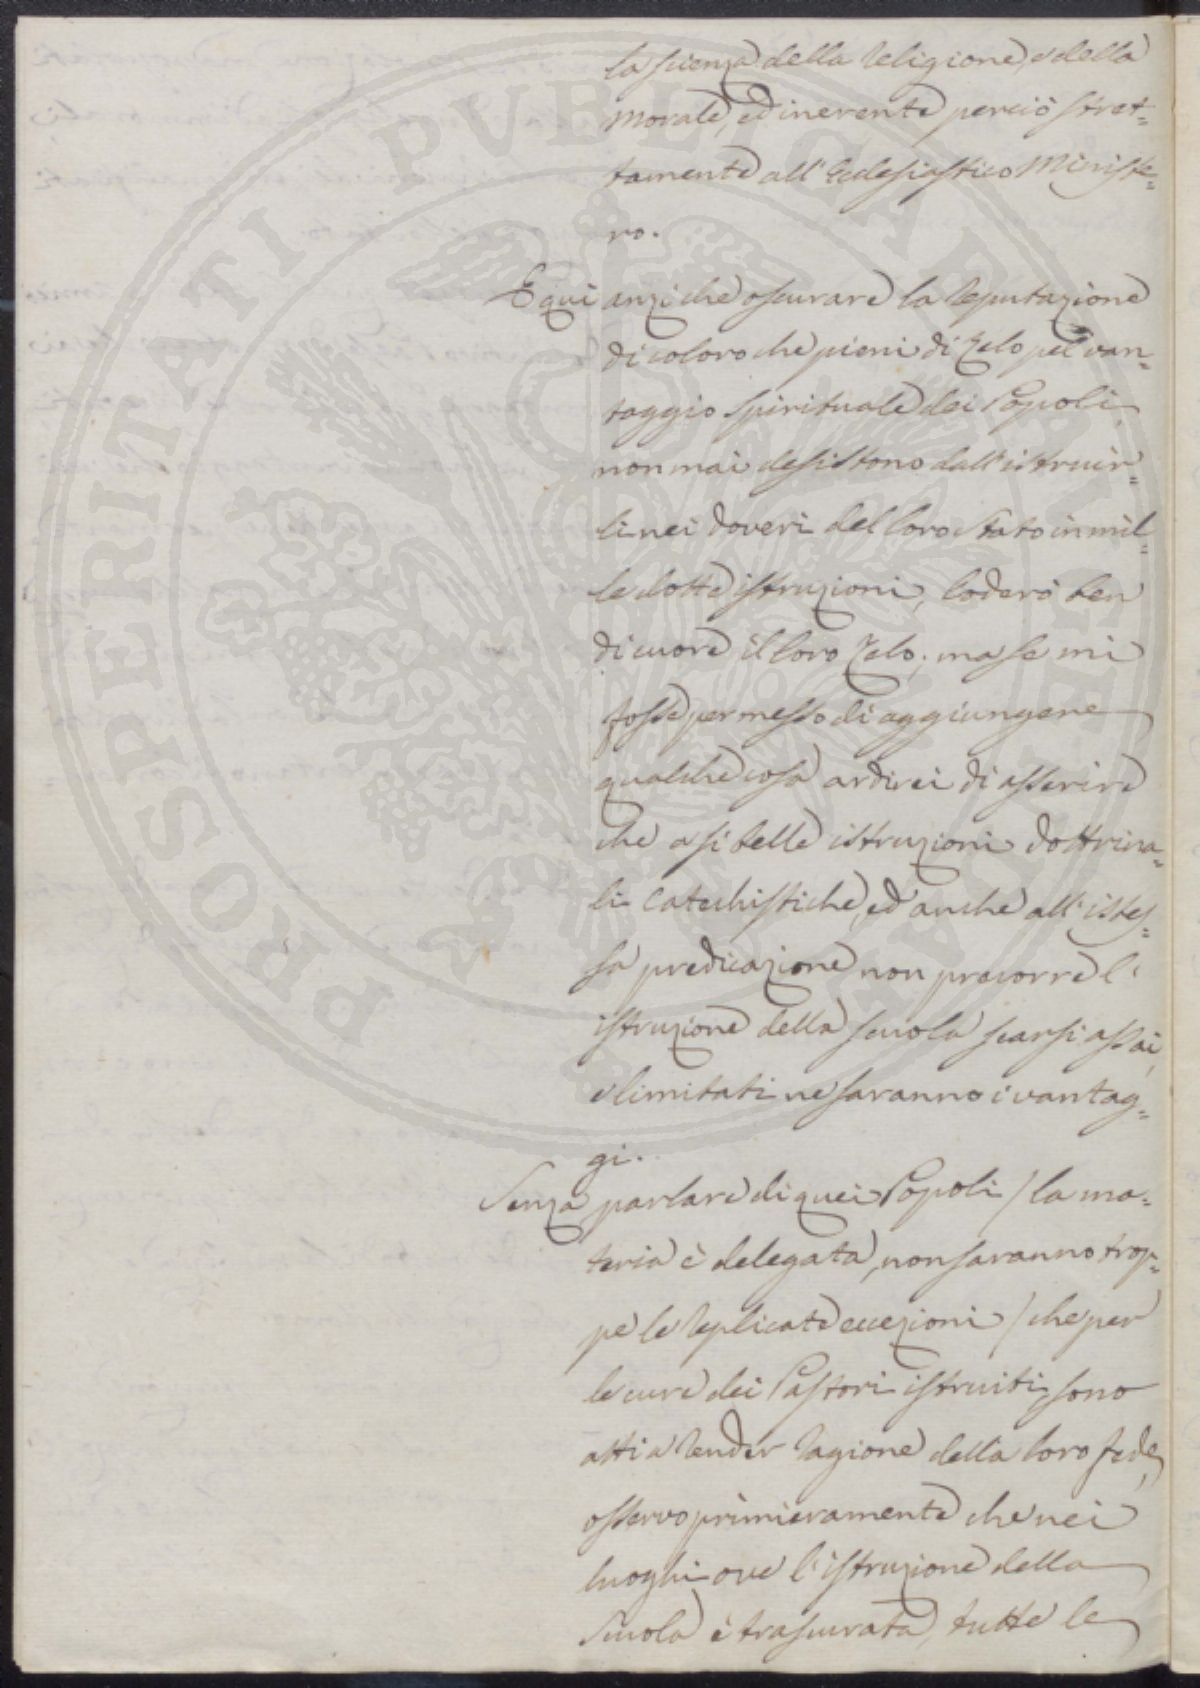 la scienza della Religione, e della
Morale, ed inerente perciò stret=
tamente all'Ecclesiastico Ministe=
ro.
E qui anziché oscurare la reputazione
di coloro che pieni di Zelo pel van=
taggio spirituale dei Popoli
non mai desistono dall'istruir=
li nei doveri del loro stato in mil=
le dotte istruzioni, loderò ben
di cuore il loro Zelo; ma se mi
fosse permesso di aggiungere
qualche cosa ardirei di asserire
che a sì belle istruzioni dottrina=
li Catechistiche, ed anche all'istes=
sa predicazione non precorre l'
istruzione della scuola scarsi assai,
e limitati ne saranno i vantag=
gi.
Senza parlare di quei Popoli / la ma=
teria è delegata, non saranno trop=
pe le replicate eccezioni / che per
le cure dei Pastori istruiti, sono
atti a render ragione della loro fede,
osservo primieramente che nei
luoghi ove l'istruzione della
scuola è trascurata, tutte le
PROSPERITATI PUBLICAE